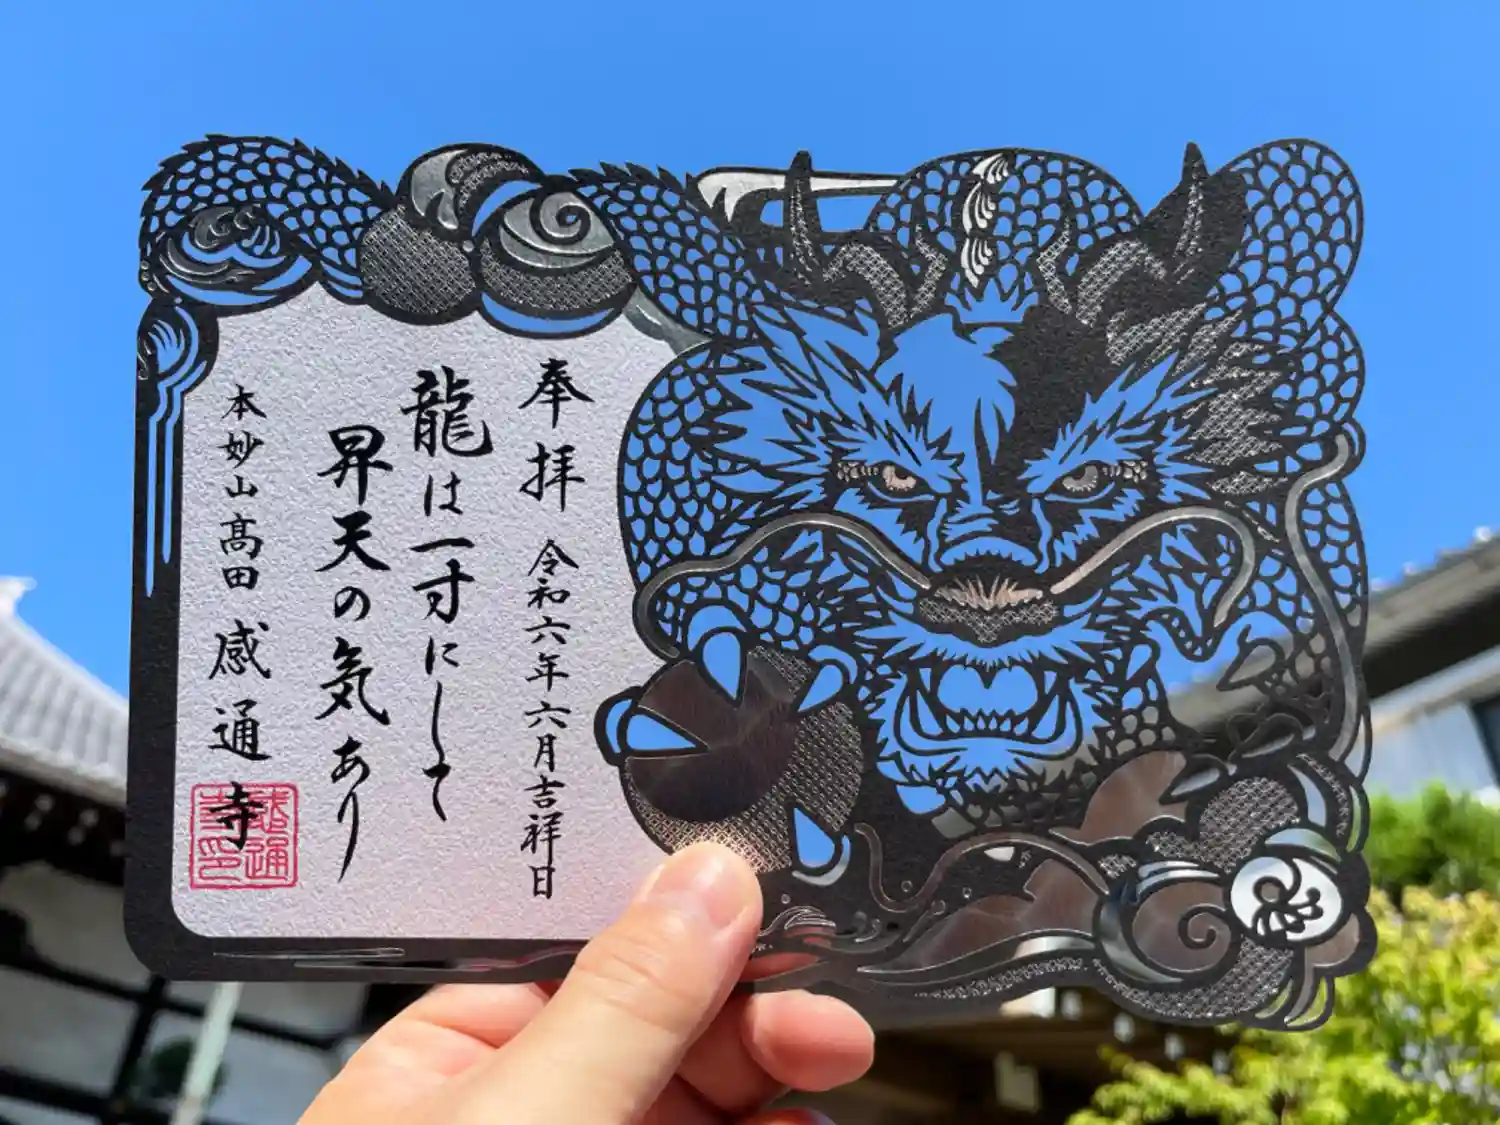 奉拝 令和六年六月吉祥日
龍は一寸にして
昇天の気あり
本妙山髙田 感通寺
感通
寺印